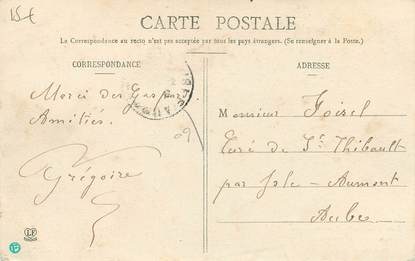 15€
CARTE POSTALE
La Correspondance au recto n'est pas acceptée par tous les pays étrangers. (Se renseigner à la Poste.)
CORRESPONDANCE
Merci des
Amitiés.
Grégoire
ADRESSE
Monsieur Foisel
Curé de St Thibault
par Isle-Aumont
Aube